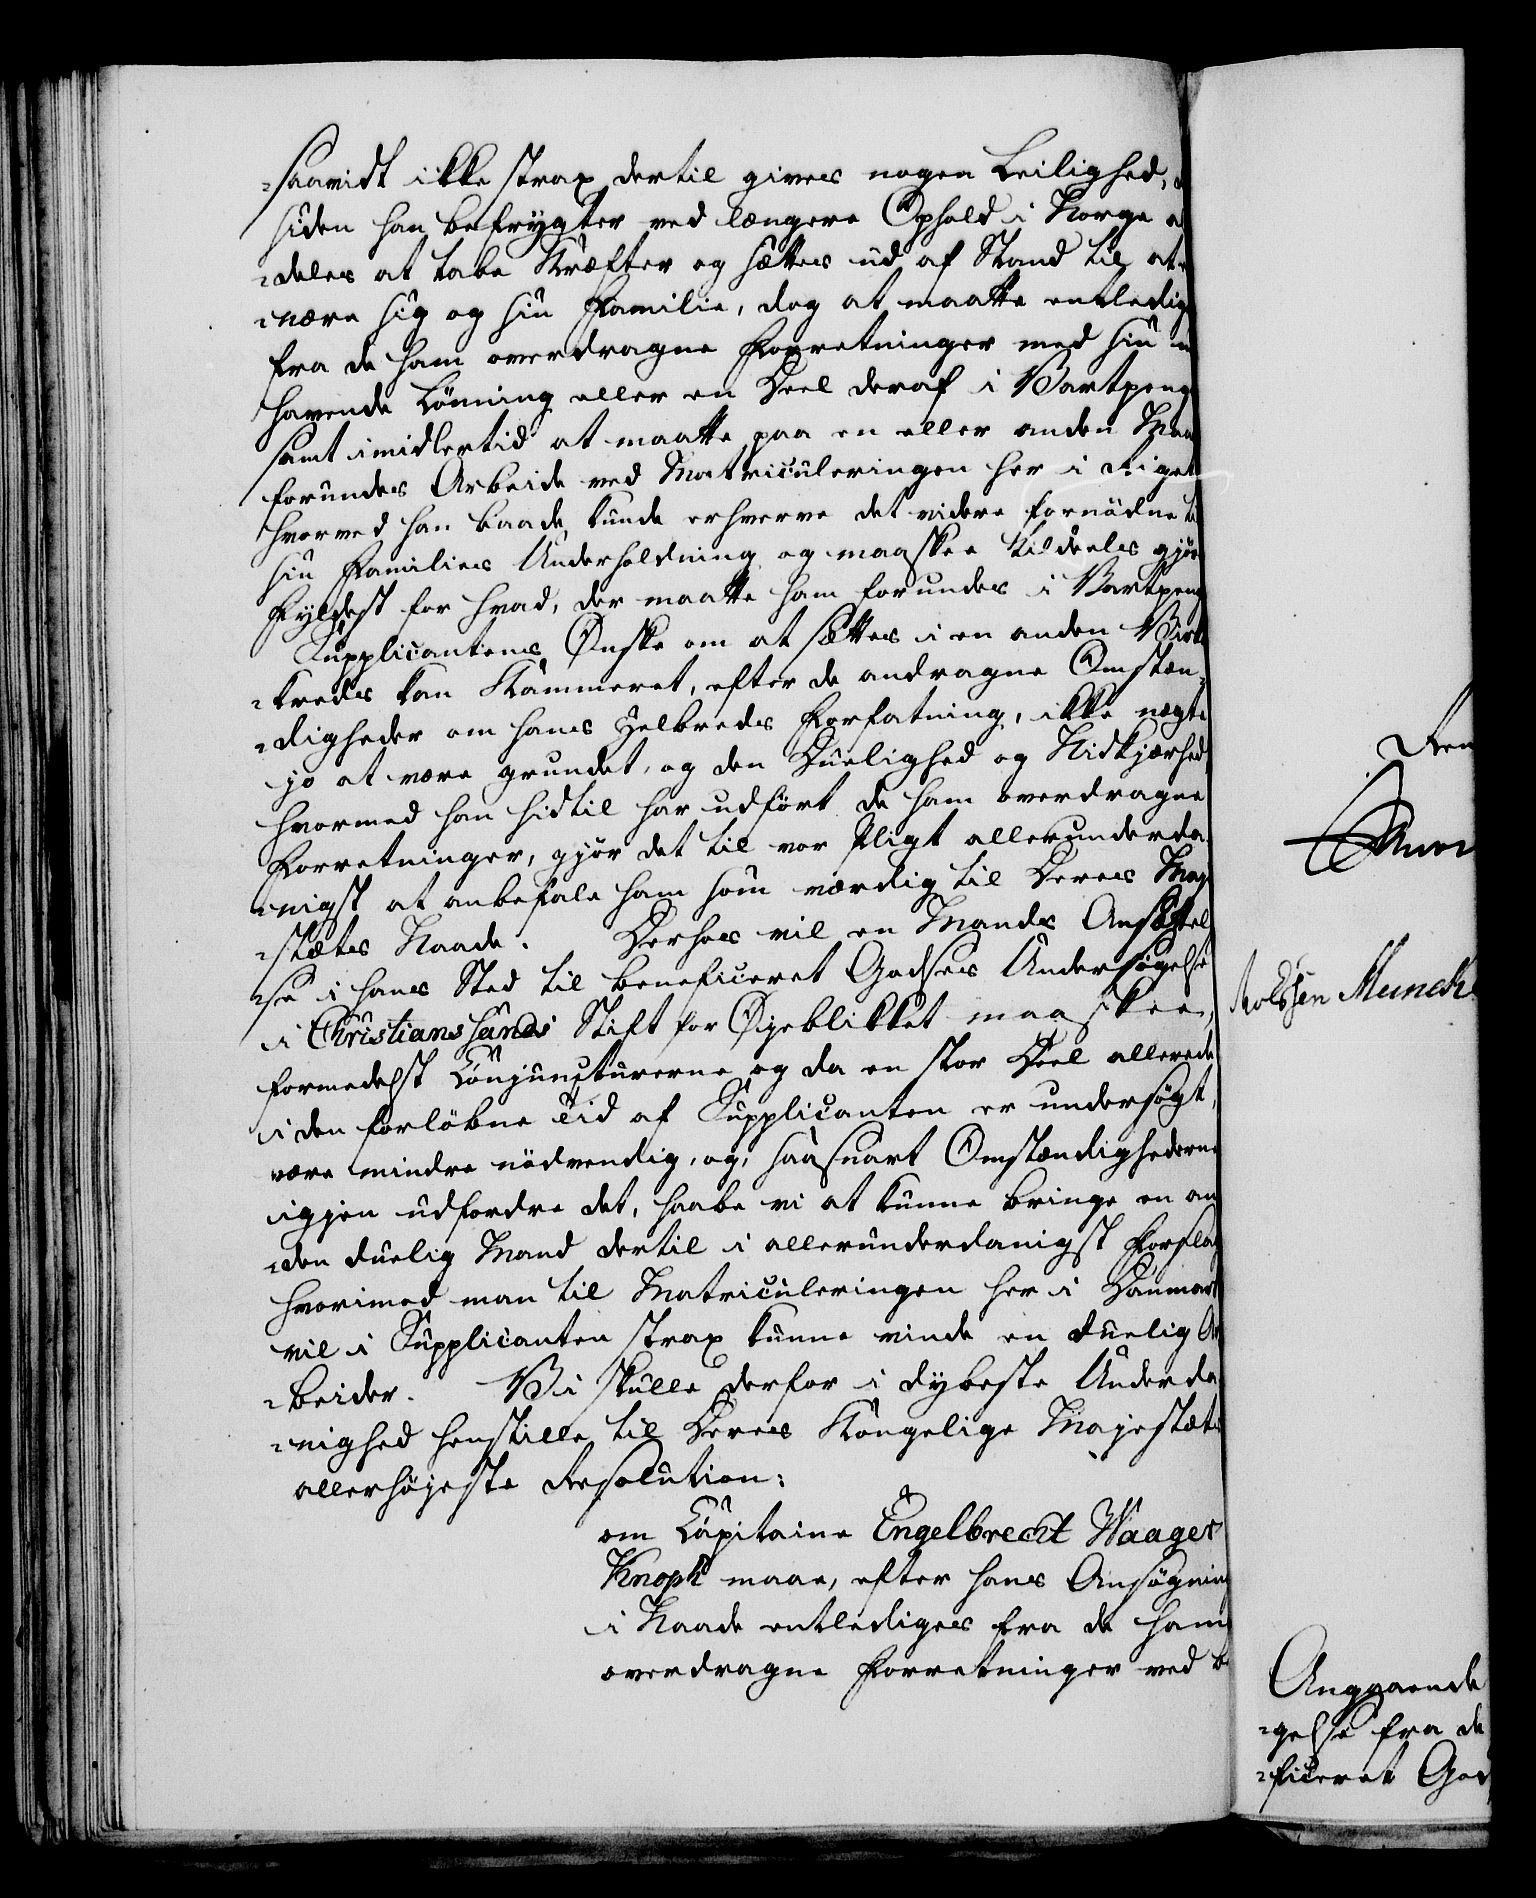 -saavidt ikke strax dertil gives nogen Leilighed,
siden han befrygter ved længere Ophold i Norge
-deles at tabe Kræfter og sættes ud af Stand til at
-nære sig og sin Familie, dog at maatte entledig
fra de ham overdragne Forretninger med sin
havende Lönning eller en Deel deraf i Vartpeng
samt imidlertid at maatte paa en eller anden Maa
forundes Arbeide ved Matriculeringen her i Riget
hvorved han baade kunde erhverve det videre fornödne t
sin Families Underholdning og maaskee tildeels gjör
Fyldest for hvad, der maatte ham forundes i Vartpeng
Supplicantens Önske om at sættes i en anden Virke
-kreds kan Kammeret, efter de andragne Omstæn-
-digheder om hans Helbreds Forfatning, ikke nægte
jo at være grundet, og den Duelighed og Nidkjærhed,
hvormed han hidtil har udfört de ham overdragne
Forretninger, gjör det til vor Pligt allerunderda-
-nigst at anbefale ham som værdig til Deres Maje
-stæts Naade. Derhos vil en Mands Ansættel
-se i hans Sted til beneficeret Godses Undersögelse
i Christianssands Stift for Öjeblikket maaskee,
formedelst Conjuncturerne og da en stor Deel allerede
i den forlöbne Tid af Supplicanten er undersögt,
være mindre nödvendig, og, saasnart Omstændighederne
igjen udfordre det, haabe vi at kunne bringe en an
-den duelig Mand dertil i allerunderdanigst Forslag
hvorimod man til Matriculeringen her i Danmark
vil i Supplicanten strax kunne vinde en duelig Ar
-beider. Vi skulle derfor i dybeste Underda
-nighed henstille til Deres Kongelige Majestæts
allerhöjeste Resolution:
om Capitaine Engelbrecht Waager
Knoph maae, efter hans Ansögning
i Naade entlediges fra de ham
overdragne Forretninger ved be
Ren
rolssen Munch
Angaaende
-gelse fra de
-ficeret God